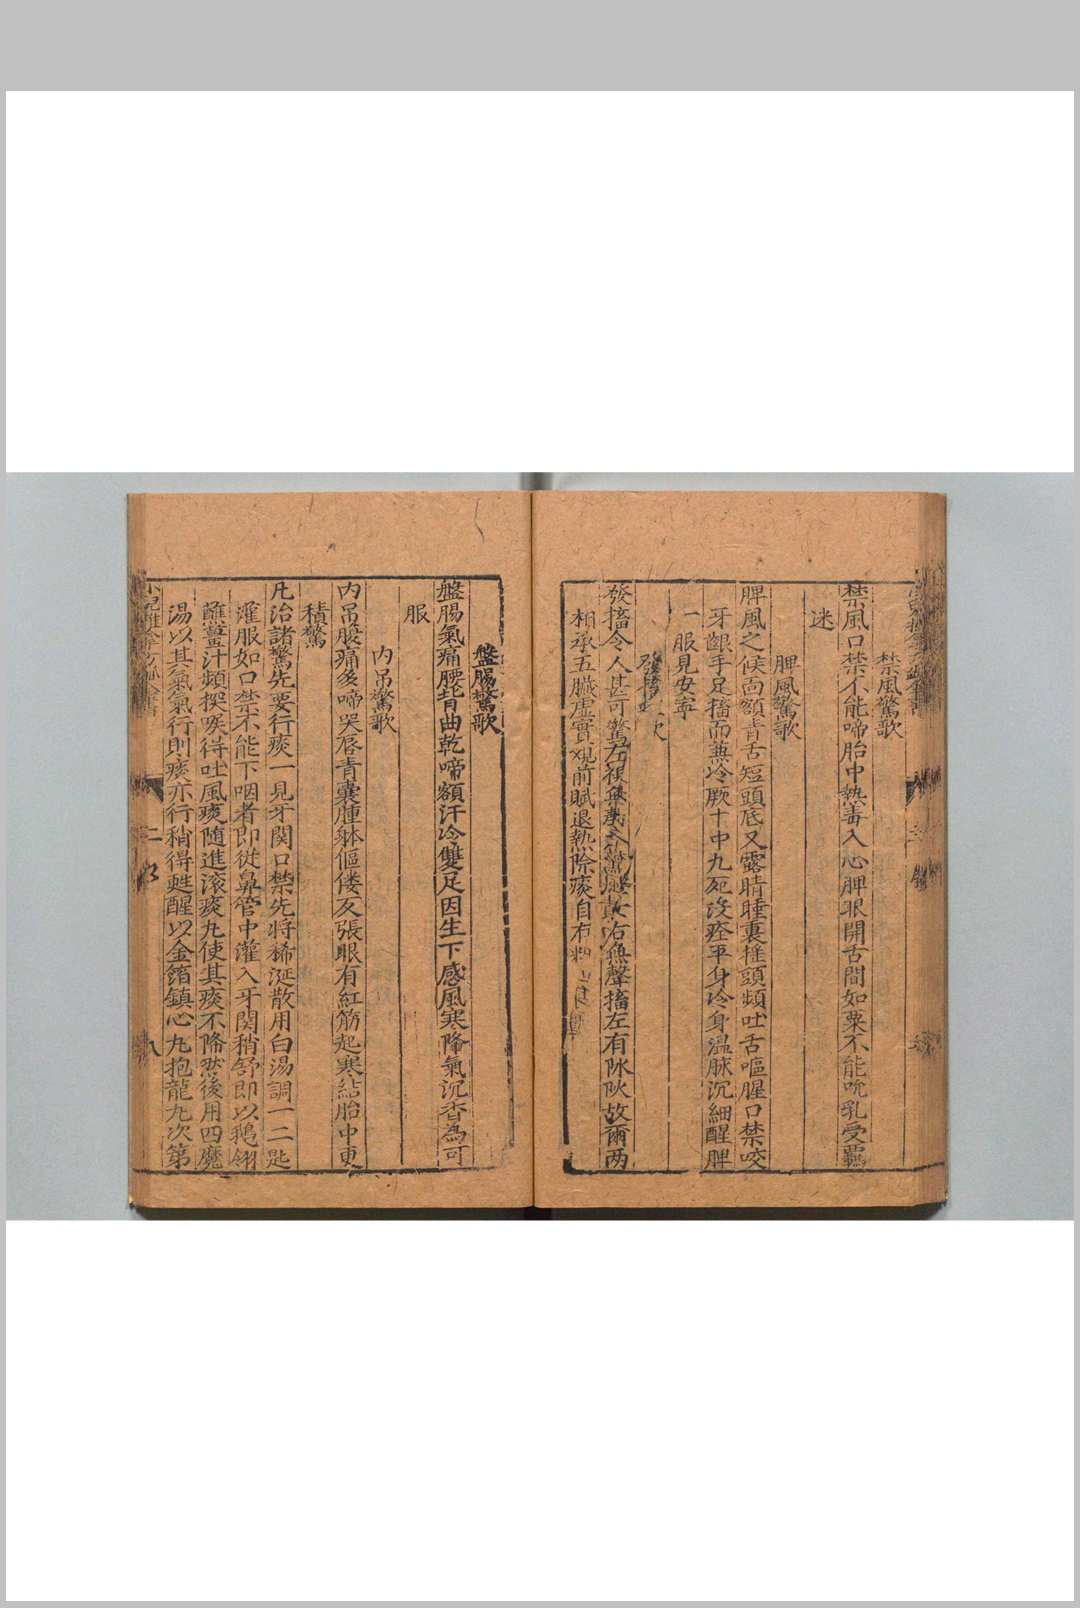 禁風驚歌
禁風口禁不能啼胎中熱毒入心脾眼開舌間如粟不能吮乳受
迷
脾風驚歌
脾風之候面額青舌短頭底又露睛睡裏搖頭頻吐舌嘔腥口禁咬
牙齦手足搐而蕪冷厥十中九死沒痊平身冷身溫脉沉細醒脾
一服見安寧
發搐
發搐令人甚可驚左視無聲右視
右無聲搐左有
故爾兩
相承五臟虛實觀前賦退熱除痰自有
盤腸驚歌
盤腸氣痛腰背曲乾啼額汗冷雙足因生下感風寒降氣沉香為可
服
內吊驚歌
內吊腹痛多啼哭唇青囊腫躰傴僂反張眼有紅筋起寒結胎中更
積驚
凡治諸驚先要行痰一見牙関口禁先將稀涎散用白湯調一二匙
灌服如口禁不能下咽者即從鼻管中灌入牙関稍舒即以鵝翎
蘸薑汁頻探疾得吐風痰隨進滾痰丸使其痰不降然後用四魔
湯以其氣氣行則痰亦行稍得甦醒以金箔鎮心丸抱龍丸次第
二
八